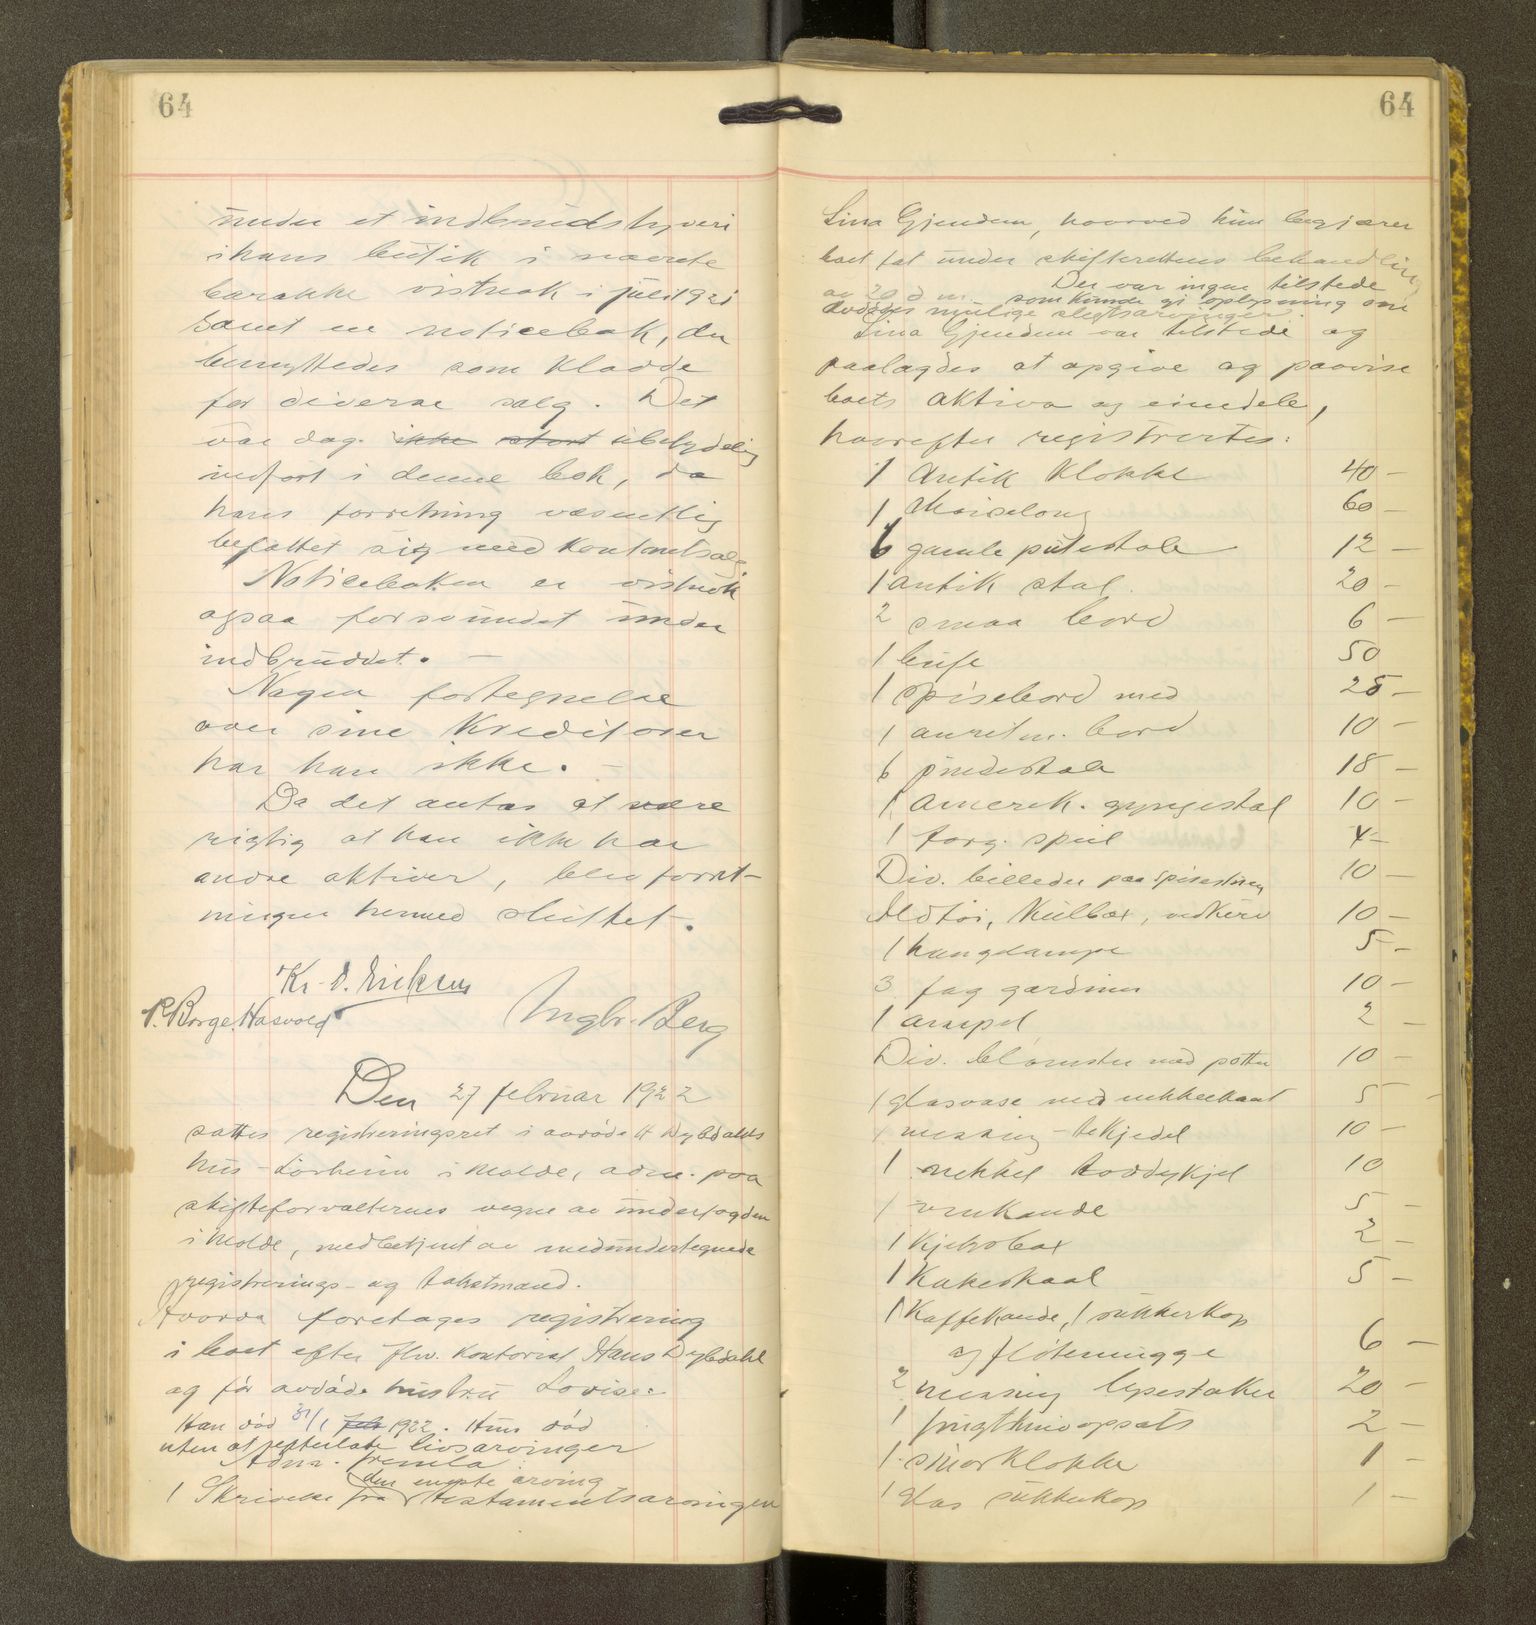 64
under et indbrudstyveri
i hans butik i nævnte
barakke vistnok i juli 1921
samt en noticebok, der
benyttedes som kladde
for diverse salg. Det
var dog ikke stort ubetydelig
indført i denne bok, da
hans forretning væsentlig
befattet sig med kontantsalg
Noticeboken er vistnok
ogsaa forsvundet under
indbruddet. -
Nogen fortegnelse
over sine kreditorer
har han ikke. -
Da det antas at være
rigtig at han ikke har
andre aktiver, blev forret-
ningen hermed sluttet.
Kr. D. Eriksen
P. Borge Hasvold
Ingbr. Berg
Den 27 februar 1922
sattes registreringsret i avdøde H Dybdahls
hus i Molde, adm. paa
skifteforvalternes vegne av underfogden
i Molde, medbetjent av medundertegnede
registrerings- og takstmænd.
Hvorda foretages registrering
i boet efter fhv. kontorist Hans Dybdahl
og før avdøde hustru Lovise:
Han død 31/1 feb 1922. Hun død
uten at efterlate livsarvinger
Adm. fremla
den eneste arving
1 Skrivelse fra testamentsarvingen
64
Lina Gjendem, hvorved hun begjærer
boet tat under skifterettens behandling
av 20 d m. Der var ingen tilstede
som kunde gi oplysning om
dødes mulige slegtsarvinger.
Lina Gjendem var tilstede og
paalagdes at opgive og paavise
boets aktiva og eiendele,
hvorefter registrertes:
1 antik klokke 40 -
1 Chaiselong 60 -
6 gamle putestole 12 -
1 antik stol 20 -
2 smaa bord 6 -
1 bufe 50
1 spisebord med 25 -
1 anret m. bord 10 -
6 pindestole 18 -
1 amerik. gyngestol 10 -
1 forg. speil 4 -
Div. billeder paa spisestuen 10 -
Ildtøi, kulbox, vedkurv 10 -
1 hængelampe 5 -
3 fag gardiner 10 -
1 ampel 2 -
Div. blomster med potter 10 -
1 glasvase med nikkelkant 5 -
1 messing - tekjedel 10 -
1 nikkel toddykjel 10
1 vinkande 5 -
1 kjeksbox 2 -
1 Kakeskaal 5 -
1 Kaffekande, 1 sukkerkop
og fløtemugge 6 -
2 messing lysestaker 20 -
1 frugtknivopsats 2 -
1 smørklokke 1 -
1 glas sukkerkop 1 -